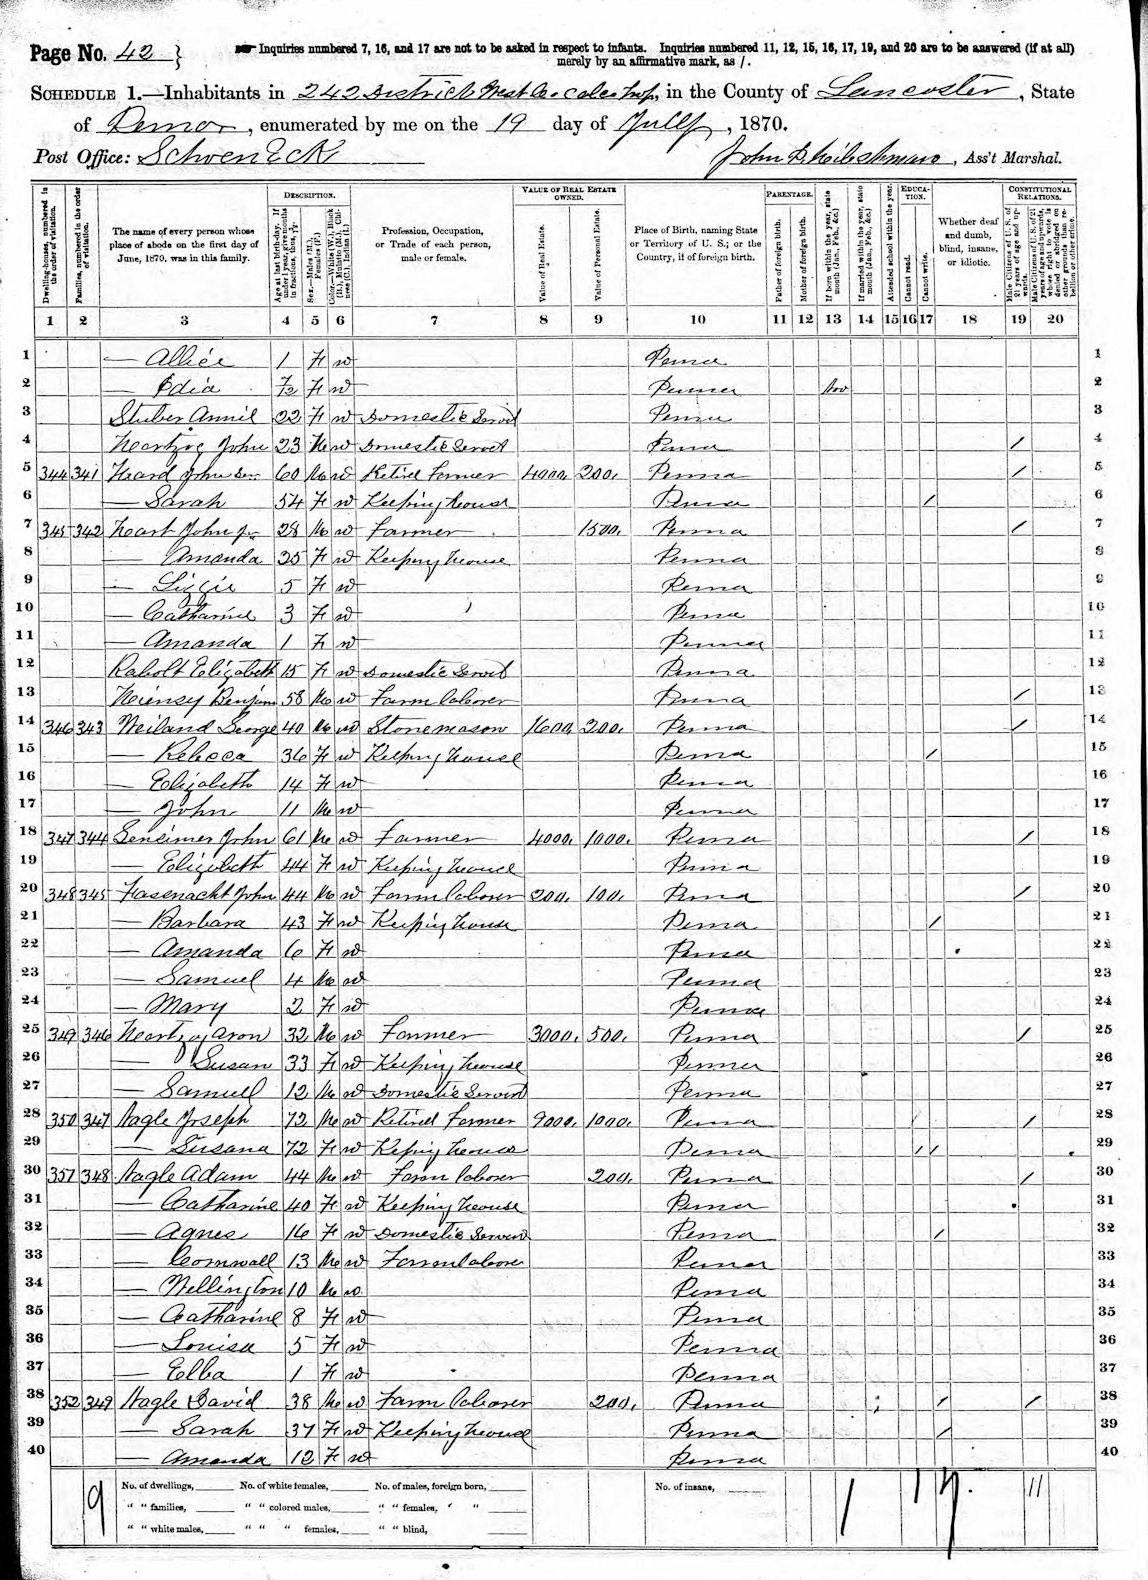 Page No. 42
Inquiries numbered 7, 16, and 17 are not to be asked in respect to infants. Inquiries numbered 11, 12, 15, 16, 17, 19, and 20 are to be answered (if at all)
merely by an affirmative mark, as /.
SCHEDULE 1.—Inhabitants in 242 District West Cocalico Twp, in the County of Lancaster, State
of Penna, enumerated by me on the 19 day of July, 1870.
Post Office: Schoeneck John B , Ass't Marshal.
Dwelling-houses, numbered in the order of visitation.
Families, numbered in the order of visitation.
The name of every person whose place of abode on the first day of June, 1870, was in this family.
DESCRIPTION.
Age at last birth-day. If under 1 year, give months in fractions, thus, 3/12.
Sex.—Males (M.), Females (F.)
Color.—White (W.), Black (B.), Mulatto (M.), Chinese (C.), Indian (I.)
Profession, Occupation, or Trade of each person, male or female.
VALUE OF REAL ESTATE OWNED.
Value of Real Estate.
Value of Personal Estate.
Place of Birth, naming State or Territory of U. S.; or the Country, if of foreign birth.
PARENTAGE.
Father of foreign birth.
Mother of foreign birth.
If born within the year, state month (Jan., Feb., &c.)
If married within the year, state month (Jan., Feb., &c.)
Attended school within the year.
EDUCATION.
Cannot read.
Cannot write.
Whether deaf and dumb, blind, insane, or idiotic.
CONSTITUTIONAL RELATIONS.
Male Citizens of U. S. of 21 years of age and upwards.
Male Citizens of U. S. of 21 years of age and upwards, whose right to vote is denied or abridged on other grounds than rebellion or other crime.
1 2 3 4 5 6 7 8 9 10 11 12 13 14 15 16 17 18 19 20
1 — Allice 1 F W Penna 1
2 — Edia 7/12 F W Penna Nov 2
3 Stuber Annie 22 F W Domestic Servt Penna 3
4 Heartzog John 23 M W Domestic Servt Penna / 4
5 344 341 Heard John Sen 60 M W Retired Farmer 4000 200 Penna / 5
6 — Sarah 54 F W Keeping house Penna / 6
7 345 342 Heart John Jr 28 M W Farmer 1500 Penna / 7
8 — Amanda 25 F W Keeping house Penna 8
9 — Lizzie 5 F W Penna 9
10 — Catharine 3 F W Penna 10
11 — Amanda 1 F W Penna 11
12 Rabolt Elizabeth 15 F W Domestic Servt Penna 12
13 Benjam 58 M W Farm laborer Penna / 13
14 346 343 Weiland George 40 M W Stone mason 1600 200 Penna / 14
15 — Rebecca 36 F W Keeping house Penna / 15
16 — Elizabeth 14 F W Penna 16
17 — John 11 M W Penna 17
18 347 344 Gensimer John 61 M W Farmer 4000 1000 Penna / 18
19 — Elizabeth 44 F W Keeping house Penna 19
20 348 345 Fasenacht John 44 M W Farm laborer 200 100 Penna / 20
21 — Barbara 43 F W Keeping house Penna / 21
22 — Amanda 6 F W Penna 22
23 — Samuel 4 M W Penna 23
24 — Mary 2 F W Penna 24
25 349 346 Heartzog Aron 32 M W Farmer 3000 500 Penna / 25
26 — Susan 33 F W Keeping house Penna 26
27 — Samuel 12 M W Domestic Servant Penna 27
28 350 347 Nagle Joseph 72 M W Retired Farmer 9000 1000 Penna / 28
29 — Susana 72 F W Keping house Penna / / 29
30 351 348 Nagle Adam 44 M W Farm laborer 200 Penna / 30
31 — Catharine 40 F W Keeping house Penna 31
32 — Agnes 16 F W Domestic Servant Penna / 32
33 — Cornwall 13 M W Farm laborer Penna 33
34 — Wellington 10 M W Penna 34
35 — Catharine 8 F W Penna 35
36 — Louisa 5 F W Penna 36
37 — Ella 1 F W Penna 37
38 352 349 Nagle David 38 M W Farm laborer 200 Penna / / 38
39 — Sarah 37 F W Keeping house Penna / 39
40 — Amanda 12 F W Penna 40
9 No. of dwellings, No. of white females, No. of males, foreign born, No. of insane, 1 1 7 11
" " families, " " colored males, " " females, " "
" " white males, " " " females, " " blind,